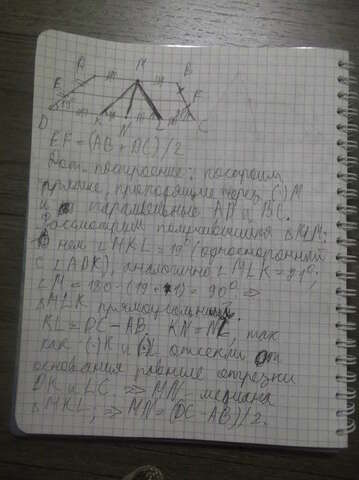 A M B
E F
19°
D K N L C
EF = (AB + DC)/2
Доп. построение: построим
прямые, проходящие через (·)M
и параллельные AD и BC.
Рассмотрим получившийся △MLK:
в нем ∠MKL = 19° (односторонний
с ∠ADK), аналогично ∠MLK = 71°,
∠M = 180 - (19 + 71) = 90° ⇒
△MLK прямоугольный.
KL = DC - AB. KN = NL, так
как (·)K и (·)L отсекли от
основания равные отрезки
DK и LC, ⇒ MN - медиана
△MKL, ⇒ MN = (DC - AB)/2.